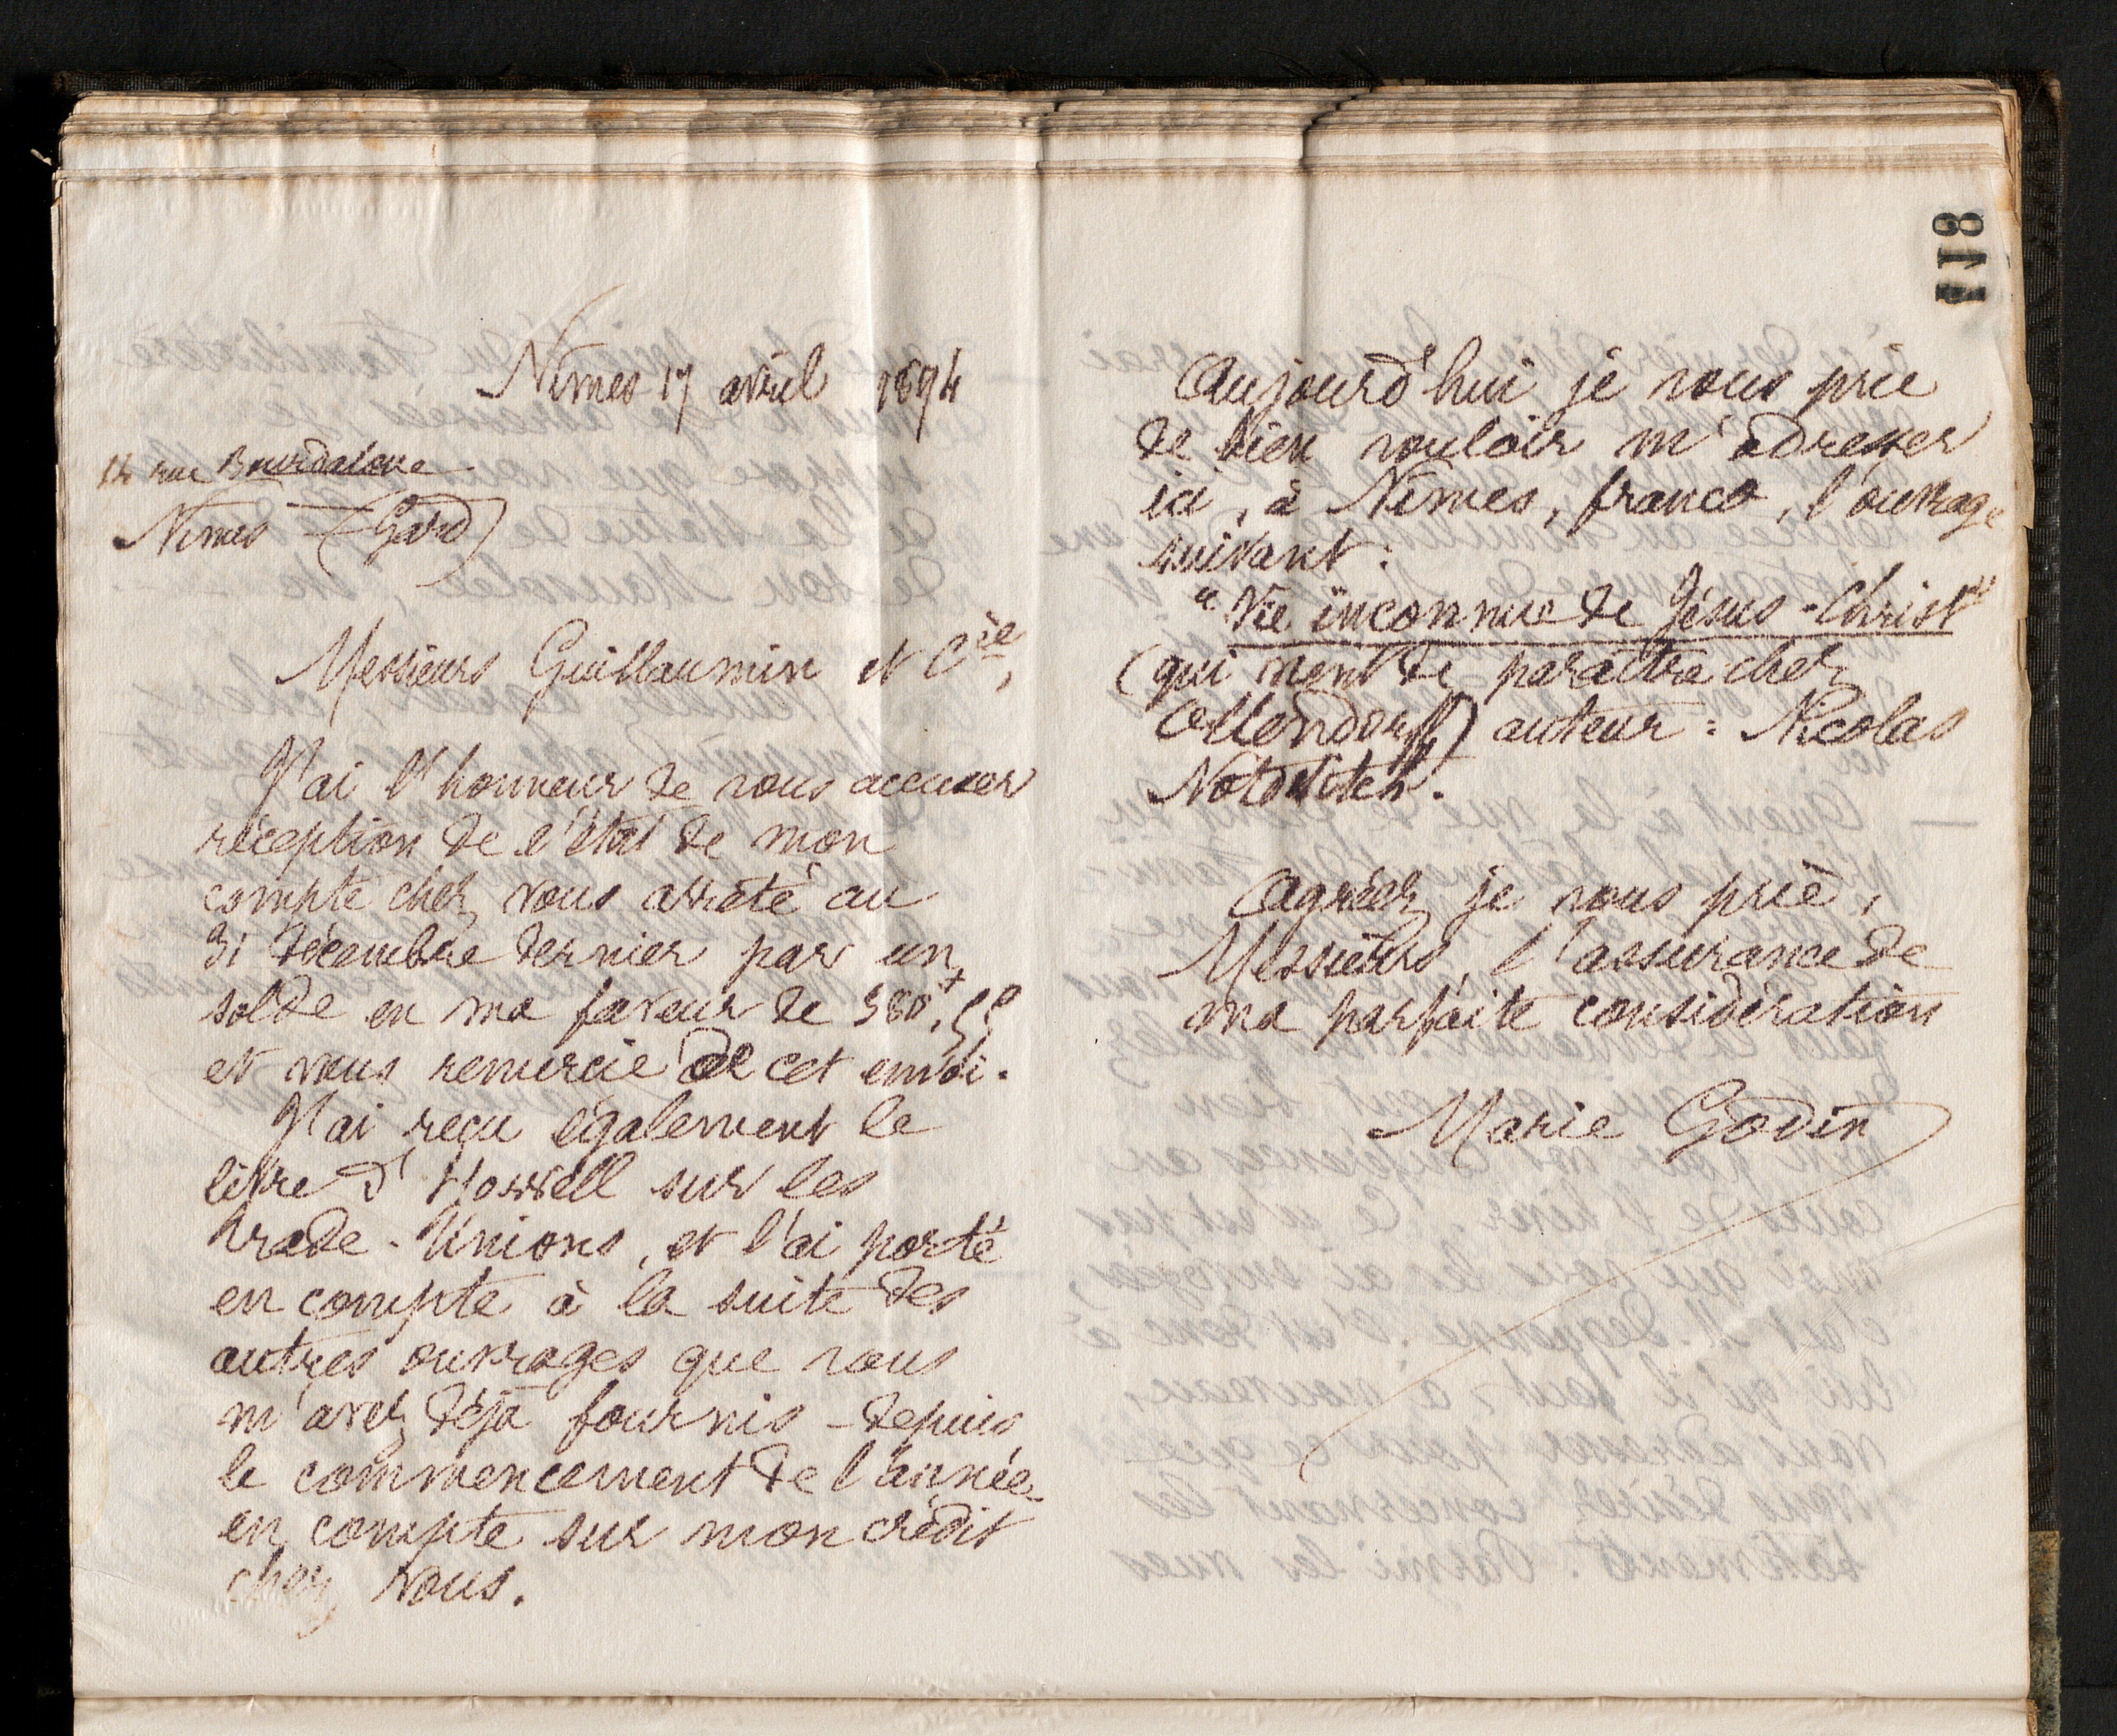 118
Nîmes 17 avril 1894
14 rue Bourdaloue
Nîmes (Gard)
Messieurs Guillaumin et Cie,
J'ai l'honneur de vous accuser
réception de l'état de mon
compte chez vous arrêté au
31 décembre dernier par un
solde en ma faveur de
et vous remercie de cet envoi.
J'ai reçu également le
livre d'Howell sur les
Trade-Unions, et l'ai porté
en compte à la suite des
autres ouvrages que vous
m'avez déjà fournis - depuis
le commencement de l'année -
en compte sur mon crédit
chez vous.
Aujourd'hui je vous prie
de bien vouloir m'adresser
ici, à Nîmes, franco, l'ouvrage
suivant :
"Vie inconnue de Jésus-Christ"
(qui vient de paraître chez
Ollendorff) auteur : Nicolas
Notovitch.
Agréez je vous prie,
Messieurs, l'assurance de
ma parfaite considération
Marie Godin